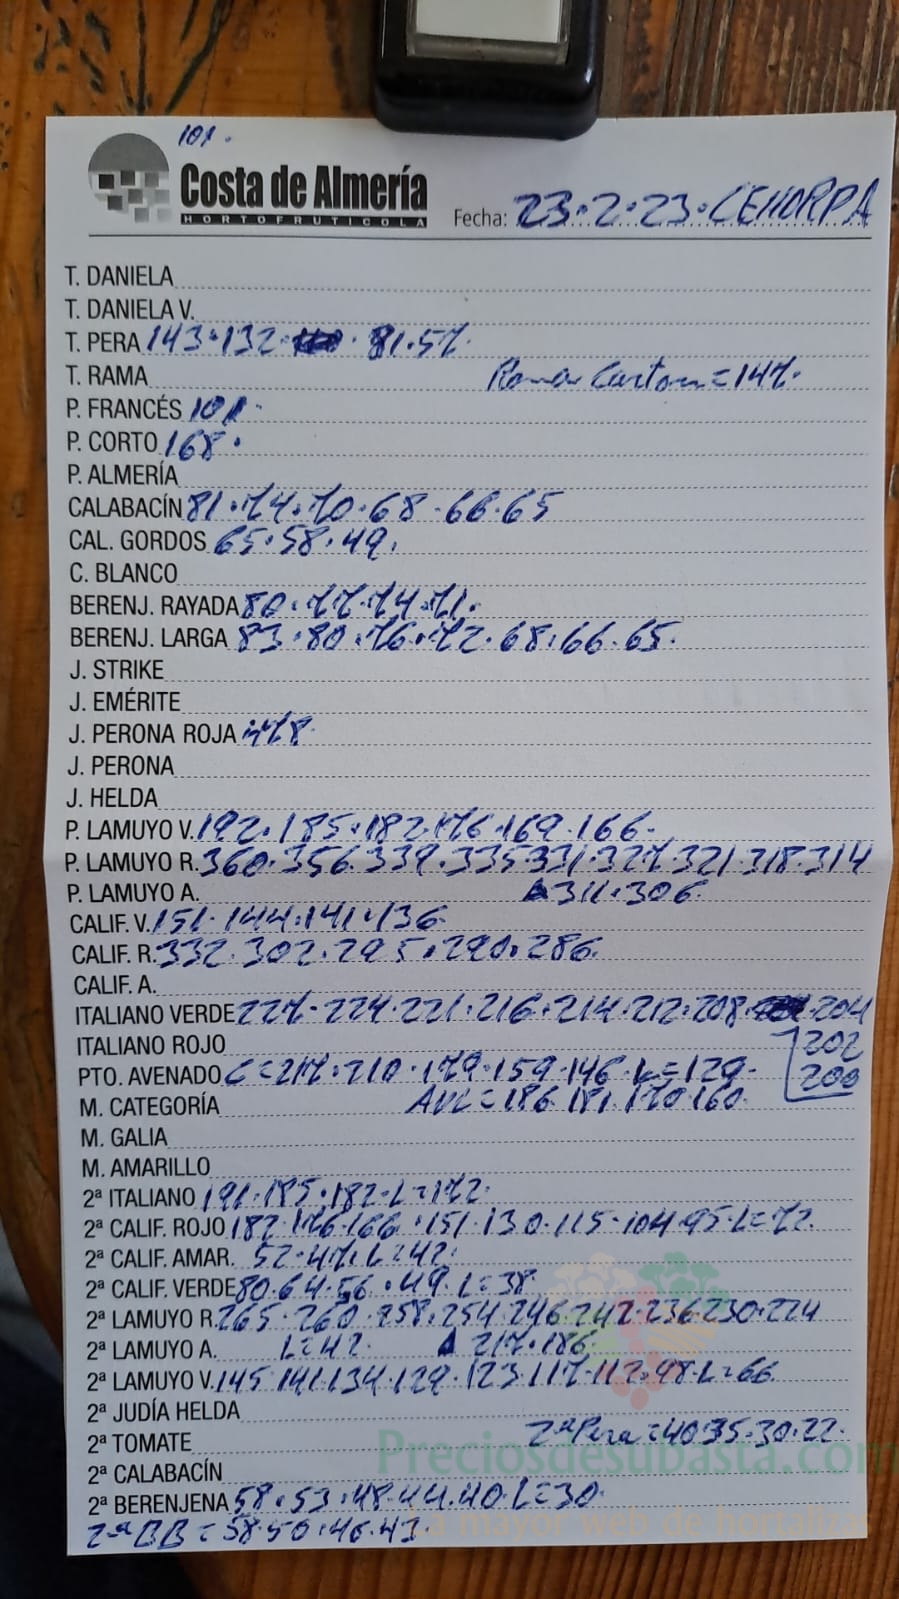 101.
Costa de Almería
HORTOFRUTICOLA
Fecha: 23.2.23. CEHORPA
T. DANIELA
T. DANIELA V.
T. PERA 143.132. 81.57.
T. RAMA Rama Carton=147.
P. FRANCÉS 101.
P. CORTO 168.
P. ALMERÍA
CALABACÍN 81.74.70.68.66.65
CAL. GORDOS 65.58.49.
C. BLANCO
BERENJ. RAYADA 80.77.74.71.
BERENJ. LARGA 83.80.76.72.68.66.65.
J. STRIKE
J. EMÉRITE
J. PERONA ROJA 478.
J. PERONA
J. HELDA
P. LAMUYO V. 192.185.182.176.169.166.
P. LAMUYO R. 360.356.339.335.331.327.321.318.314
P. LAMUYO A. 311.306.
CALIF. V. 151.144.141.136
CALIF. R. 332.302.295.290.286.
CALIF. A.
ITALIANO VERDE 227.224.221.216.214.212.208. .204
ITALIANO ROJO 202
PTO. AVENADO C=217.210.179.159.146.L=129. 200
M. CATEGORÍA =186.181.170.160.
M. GALIA
M. AMARILLO
2ª ITALIANO 191.185.182.L=172.
2ª CALIF. ROJO 182.176.166.151.130.115.104.95.L=72.
2ª CALIF. AMAR. 52.47.L=42.
2ª CALIF. VERDE 80.64.56.49.L=38.
2ª LAMUYO R. 265.260.258.254.246.242.236.230.224
2ª LAMUYO A. L=42. 217.186.
2ª LAMUYO V. 145.141.134.129.123.117.112.98.L=66.
2ª JUDÍA HELDA
2ª TOMATE 2ªPera=40.35.30.22.
Preciosdesubasta.com
2ª CALABACÍN
2ª BERENJENA 58.53.48.44.40.L=30
2ª BB=58.50.46.43.
la mayor web de hortaliz